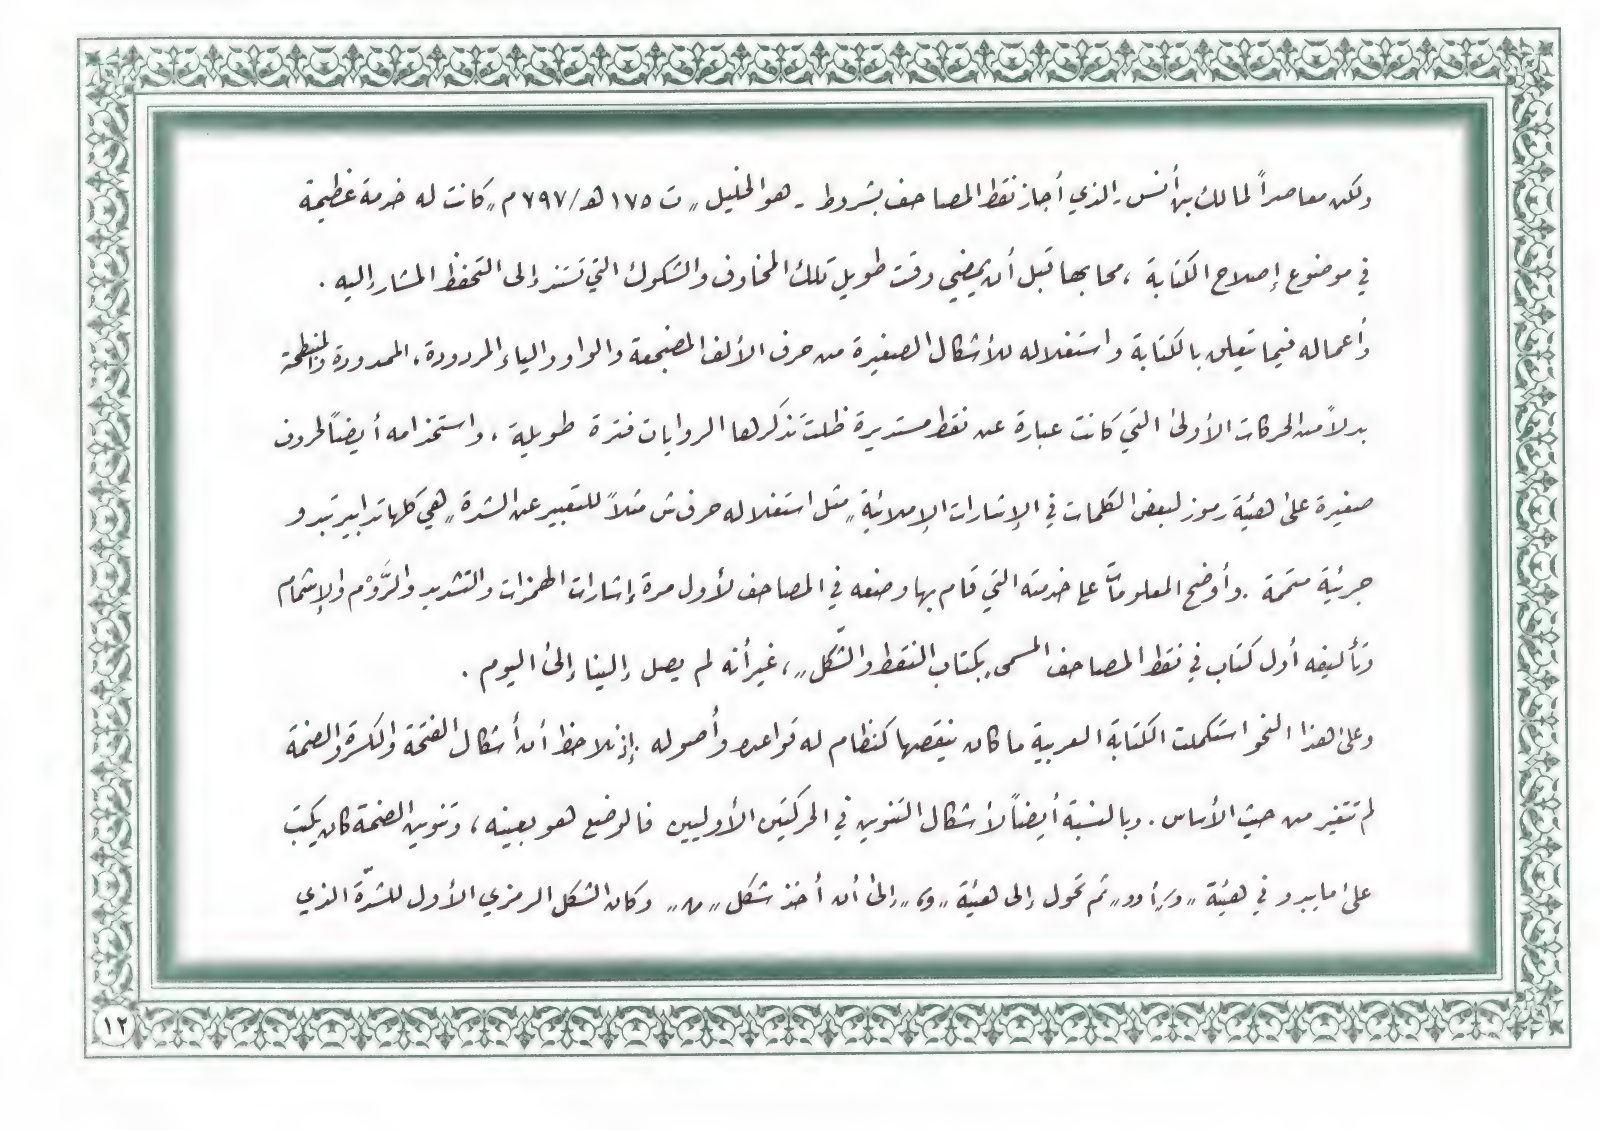 ولكن معاصراً لمالك بن أنس - الذي أجاز نقط المصاحف بشروط - هو الخليل „ ت ١٧٥ هـ/٧٩٧ م „ كانت له خدمة عظيمة
في موضوع إصلاح الكتابة ، مجابها قبل أن يمضي وقت طويل تلك المخاوف والشكوك التي تستند إلى التحفظ المشار إليه .
وأعماله فيما تتعلق بالكتابة واستغلاله للأشكال الصغيرة من حرف الألف المضجعة والواو والياء المردودة، الممدودة والمنبطحة
بدلاً من الحركات الأولى التي كانت عبارة عن نقط مستديرة ظلت تذكرها الروايات فترة طويلة ، واستخدامه أيضاً لحروف
صغيرة على هيئة رموز لبعض الكلمات في الإشارات الإملائية „ مثل استغلاله حرف ش مثلاً للتعبير عن الشدة „ هي كلها تدابير تبدو
جريئة متممة . وأوضح المعلومات على خدمته التي قام بها وضعه في المصاحف لأول مرة إشارات الهمزات والتشديد والرَّوْم والإشمام
وتأليفه أول كتاب في نقط المصاحف المسمى „ بكتاب النقط والشّكل „ ، غير أنه لم يصل إلينا إلى اليوم .
وعلى هذا النحو استكملت الكتابة العربية ما كان ينقصها كنظام له قواعده وأصوله . إذ نلاحظ أن أشكال الفتحة والكسرة والضمة
لم تتغير من حيث الأساس . وبالنسبة أيضاً لأشكال التنوين في الحركتين الأوليين فالوضع هو بعينه ، وتنوين الضمة كان يكتب
على ما يبدو في هيئة „ أو وو „ ثم تحول إلى هيئة „ „ إلى أن أخذ شكل „ „ وكان الشكل الرمزي الأول للشدّة الذي
١٢